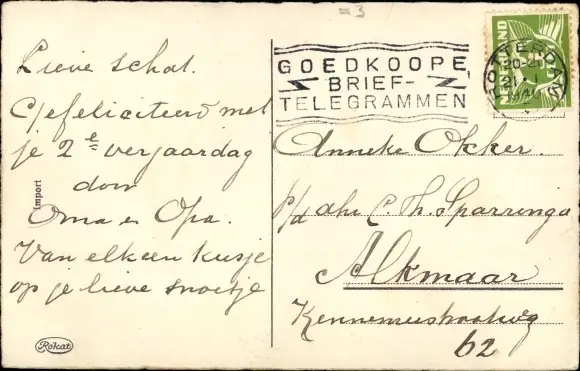 = 3
Lieve schat.
Gefeliciteerd met
je 2e verjaardag
door
Oma en Opa.
Van elk een kusje
op je lieve snoetje
Import
Rokat
GOEDKOOPE
BRIEF-
TELEGRAMMEN
NEDERLAND
ROTTERDAM
20-21
21
Anneke Okker.
P/a dhr C. Th. Sparringa
Alkmaar
Kennemerstraatweg
62